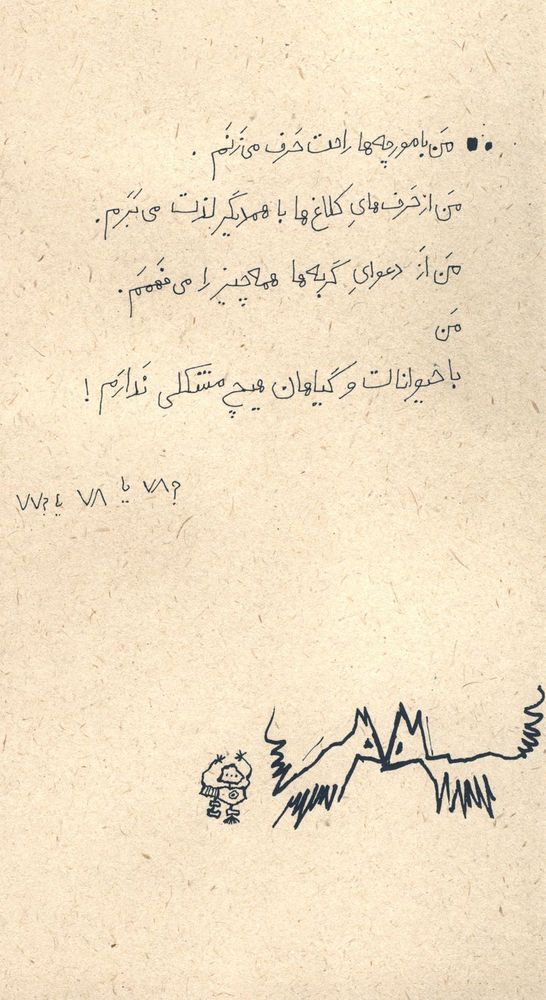 مَن با مورچه‌ها راحت حَرف می‌زَنَم .
مَن از حَرف‌هایِ کلاغ‌ها با همدیگر لذت می‌بَرَم.
مَن اَز دعوایِ گربه‌ها همه چیز را می‌فَهمَم.
مَن
با حیوانات و گیاهان هیچ مشکلی نَدارَم !
۷۸؟ یا ۷۸ یا ۷۷؟